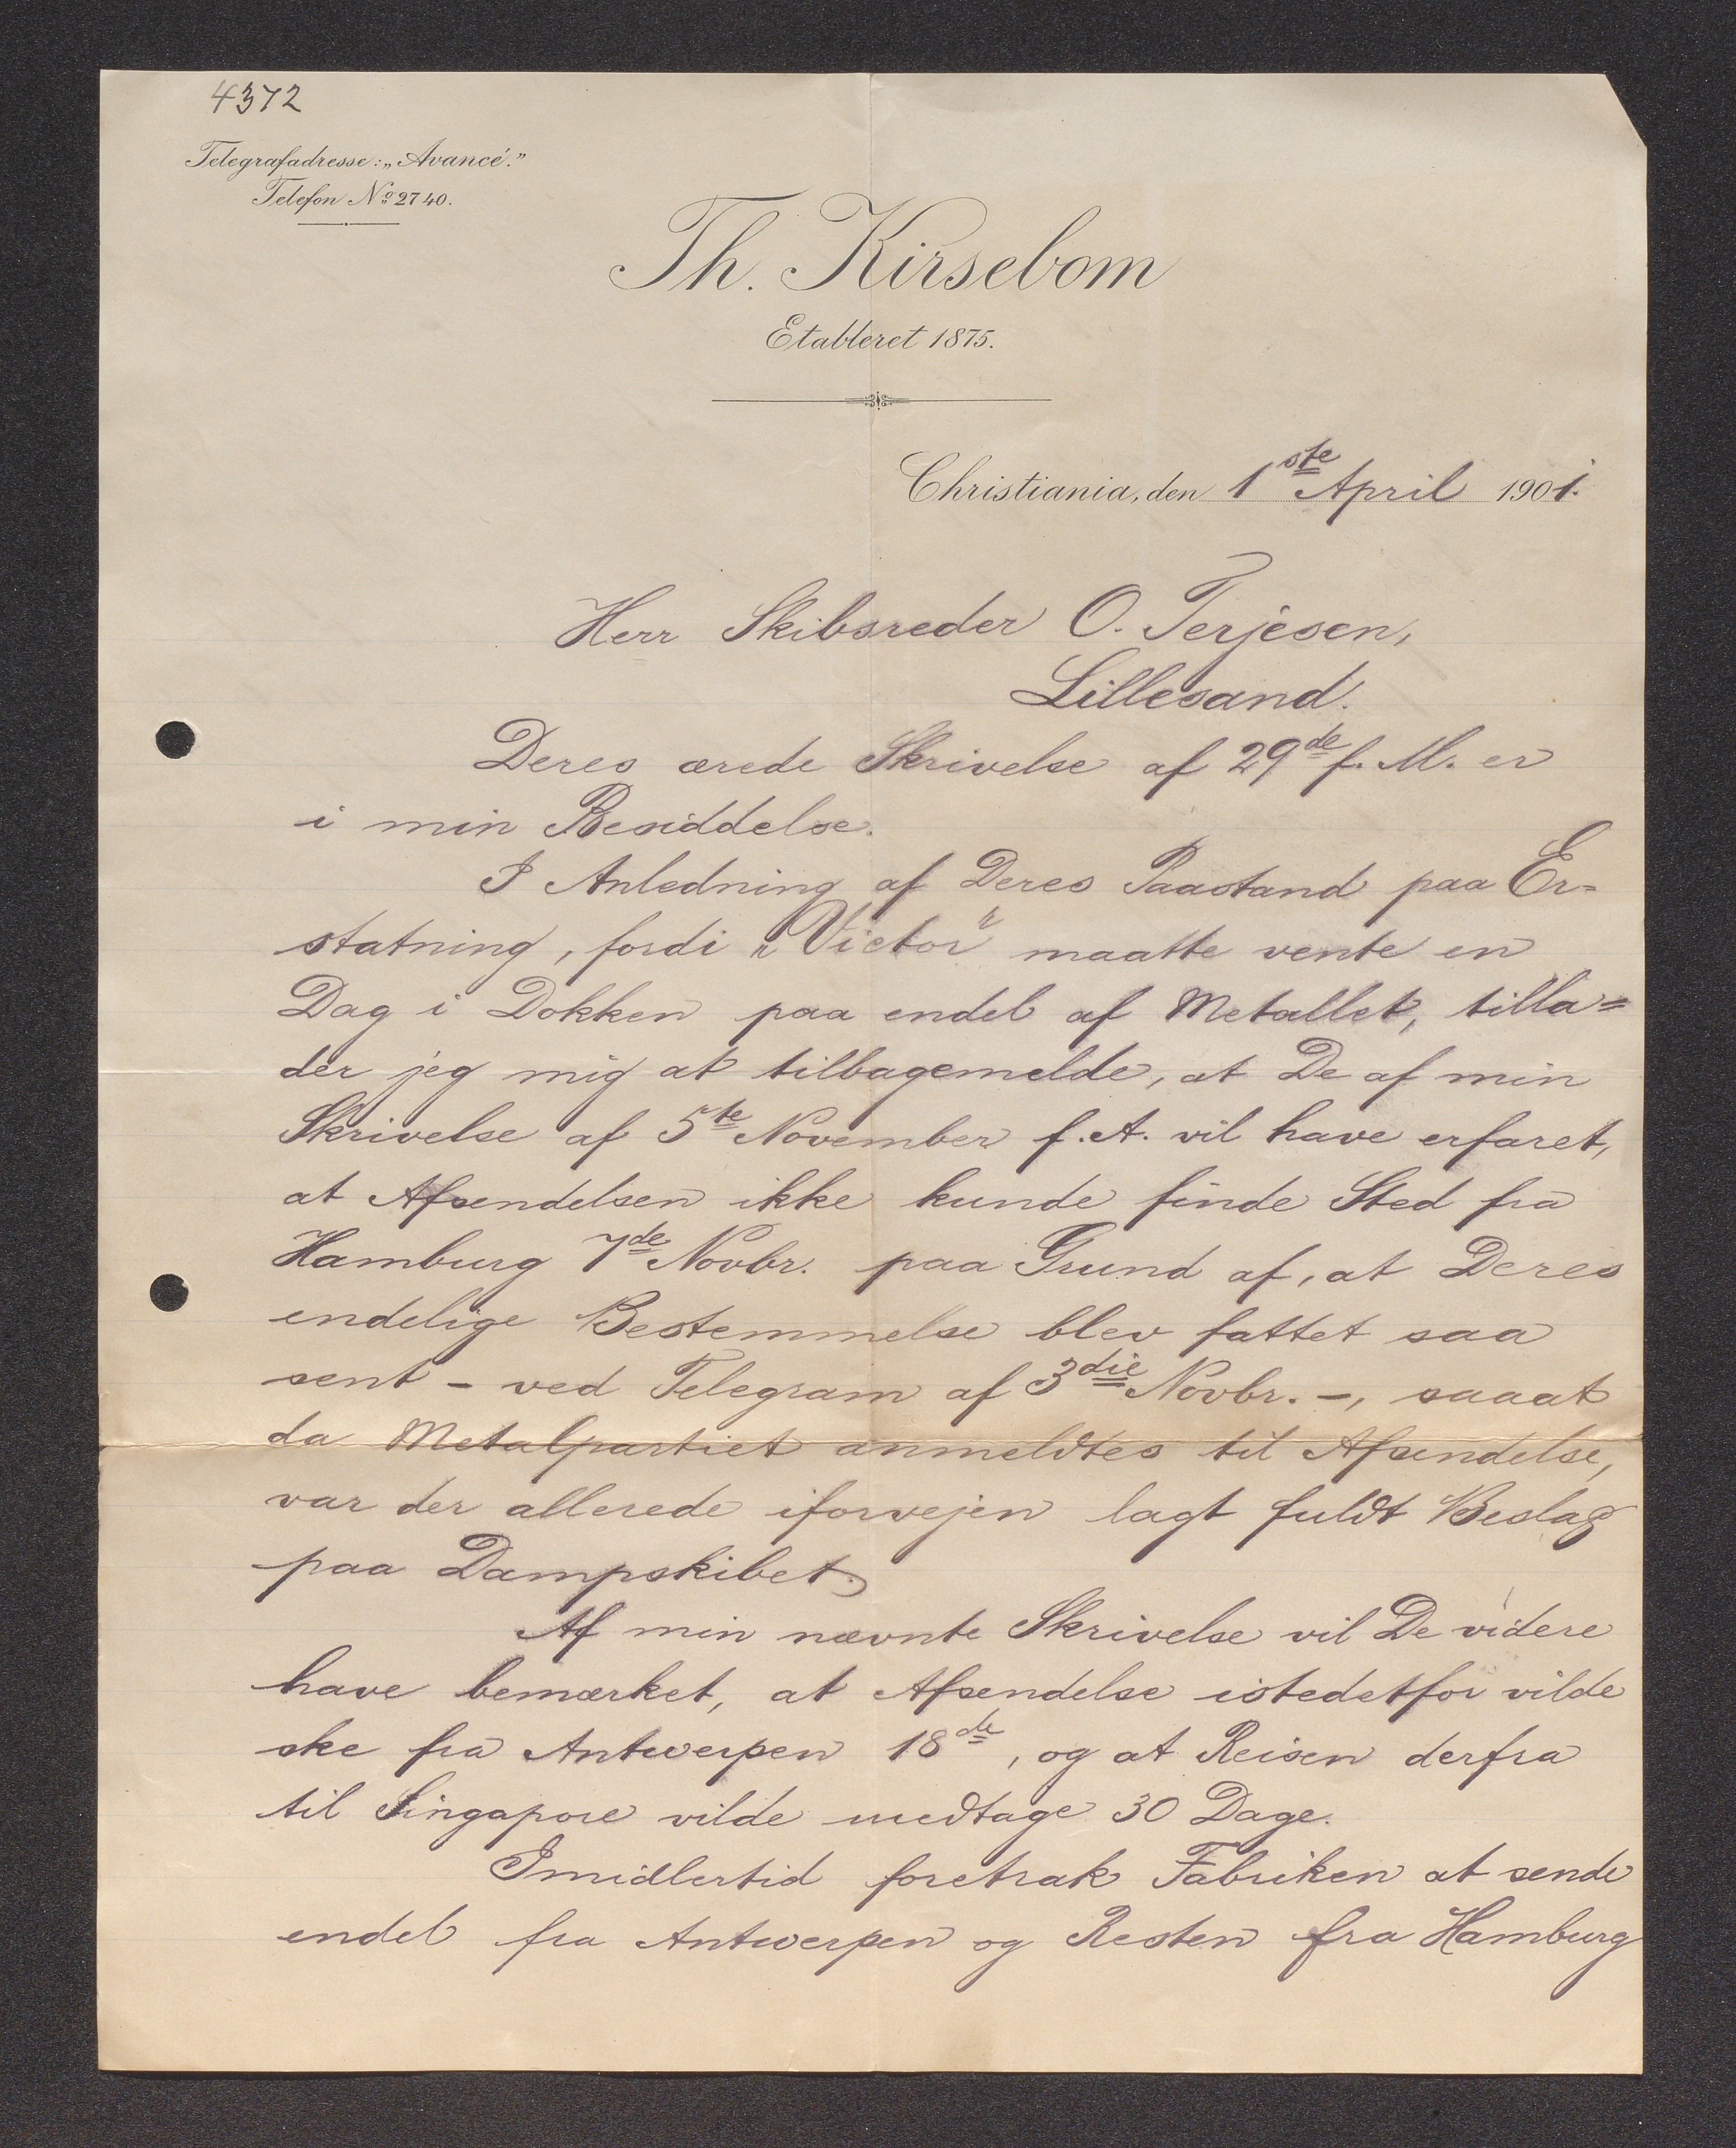 4372
Telegrafadresse: „Avancé."
Telefon No 2740.
Th. Kirsebom
Etableret 1875.
Christiania, den 1ste April 1901.
Herr Skibsreder O. Terjesen,
Lillesand.
Deres ærede Skrivelse af 29de f. M. er
i min Besiddelse.
I Anledning af Deres Paastand paa Er=
statning, fordi „Victor" maatte vente en
Dag i Dokken paa endel af Metallet, tilla=
der jeg mig at tilbagemelde, at De af min
Skrivelse af 5te November f. A. vil have erfaret,
at Afsendelsen ikke kunde finde Sted fra
Hamburg 7de Novbr. paa Grund af, at Deres
endelige Bestemmelse blev fattet saa
sent – ved Telegram af 3die Novbr. –, saaat
da Metalpartiet anmeldtes til Afsendelse,
var der allerede iforvejen lagt fuldt Beslag
paa Dampskibet.
Af min nævnte Skrivelse vil De videre
have bemærket, at Afsendelse istedetfor vilde
ske fra Antwerpen 18de, og at Reisen derfra
til Singapore vilde medtage 30 Dage.
Imidlertid foretrak Fabriken at sende
endel fra Antwerpen og Resten fra Hamburg